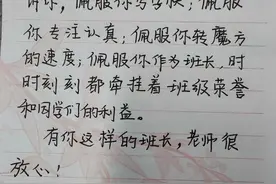 讲你，佩服你写字快；佩服
你专注认真；佩服你转魔方
的速度；佩服你作为班长，时
时刻刻都牵挂着班级荣誉
和同学们的利益。
有你这样的班长，老师很
放心！